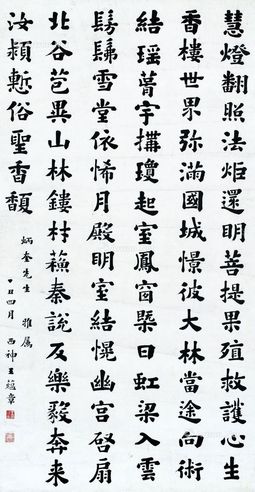 慧燈翻照法炬還明菩提果殖救護心生
香樓世界弥滿國城憬彼大林當途向術
結瑶葺宇搆瓊起室鳳窗槩日虹梁入雲
髣髴雪堂依悕月殿明室結幌幽宮啓扇
北谷芭異山林鏤村蘓秦說反樂毅奔来
汝潁慙俗聖香馥
炳奎先生 雅属
丁丑四月 西神王蘊章